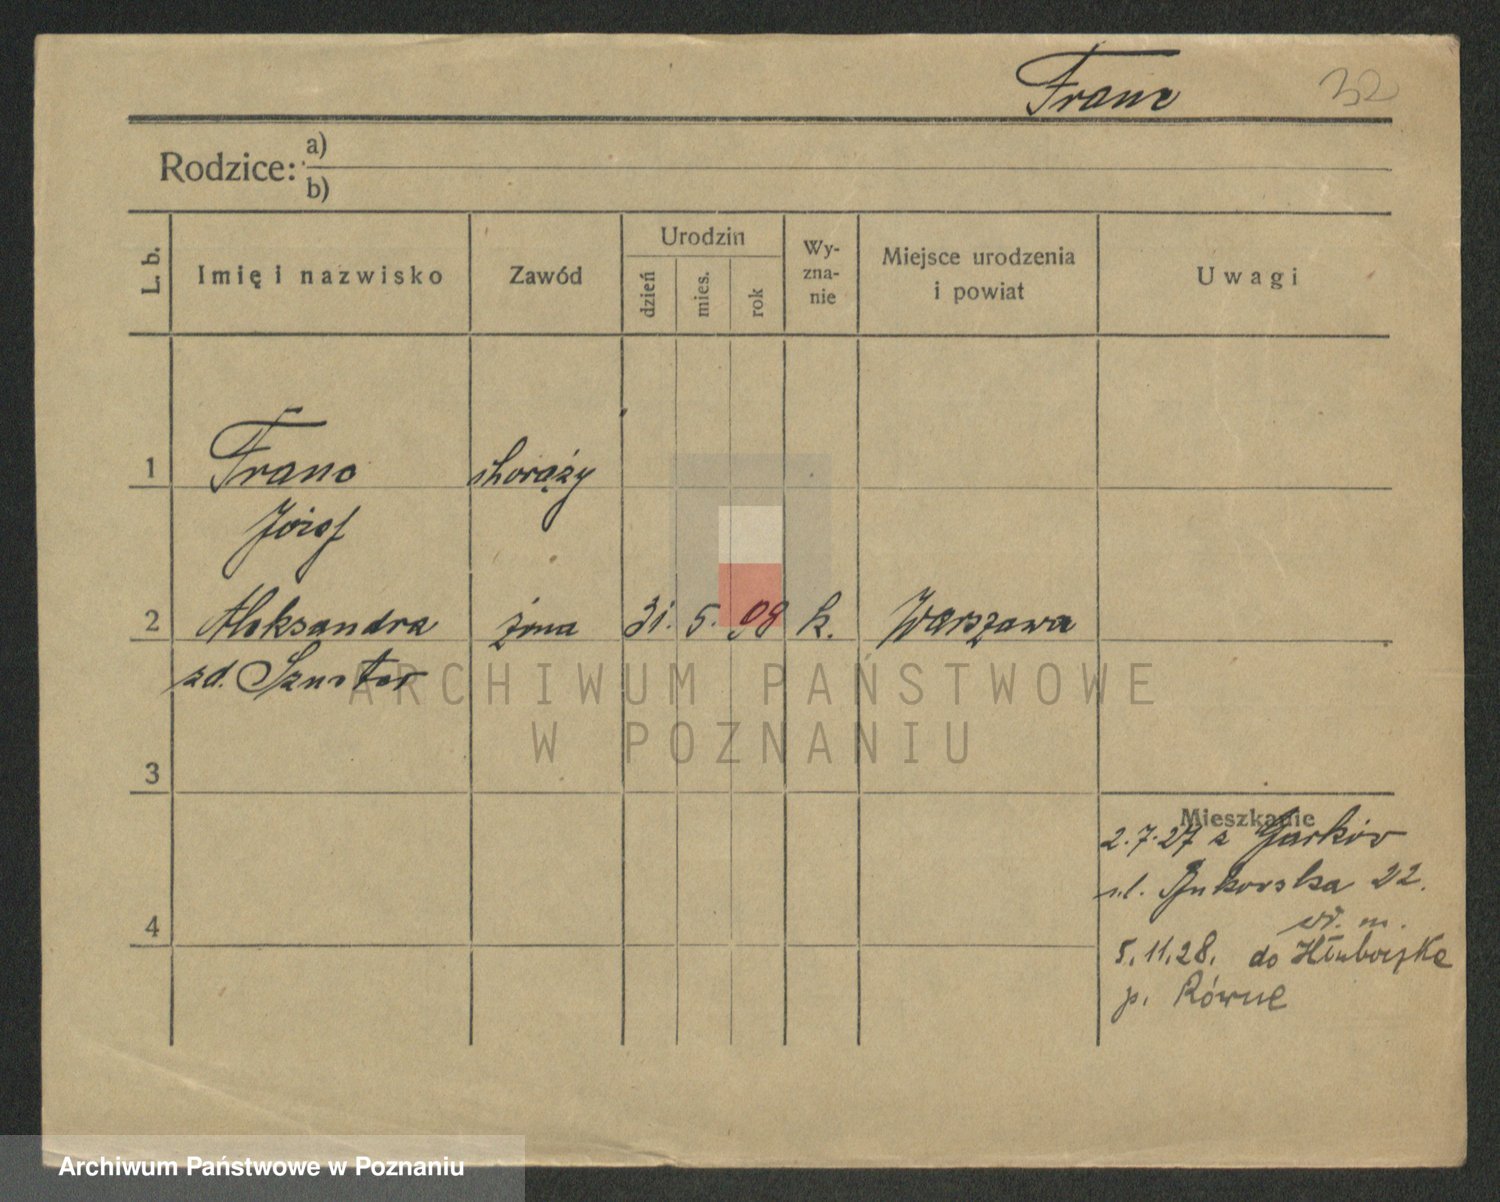 Franc 32
Rodzice: a)
b)
L. b. Imię i nazwisko Zawód Urodzin dzień mies. rok Wy-zna-nie Miejsce urodzenia i powiat Uwagi
1 Franc chorąży
Józef
2 Aleksandra żona 31. 5. 98 k. Warszawa
zd. Sznoter
ARCHIWUM PAŃSTWOWE
W POZNANIU
3
Mieszkanie
2.7.27 z
ul. Bukowska 22.
4 w. m.
5.11.28. do
p. Równe
Archiwum Państwowe w Poznaniu